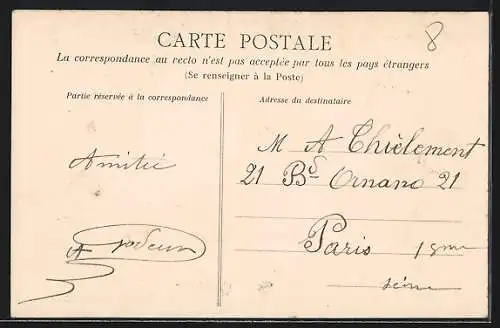 8
CARTE POSTALE
La correspondance au recto n'est pas acceptée par tous les pays étrangers
(Se renseigner à la Poste)
Partie réservée à la correspondance
Adresse du destinataire
Amitié
M A Thièlement
21 Bd Ornano 21
Paris
Seine